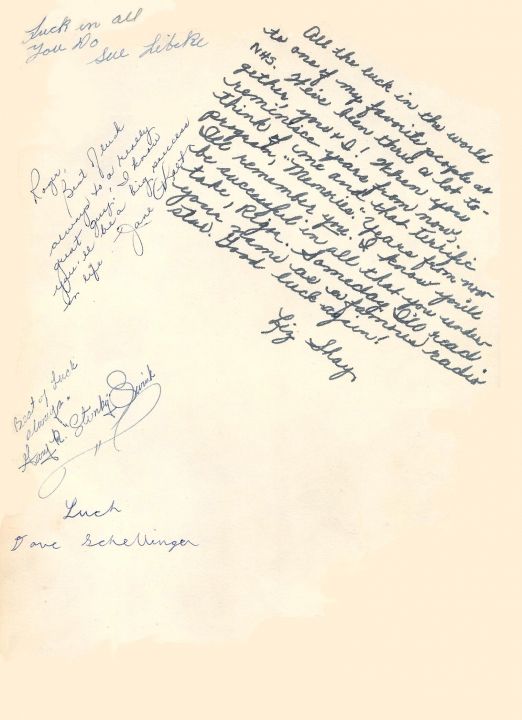 Luck in all
You Do
Sue Libcke
All the luck in the world
to one of my favorite people at
NHS. We've been thru a lot to-
gether, you & I! When you
reminisce years from now,
think of me and that terrific
program, "Memories". Years from now
I'll remember you. I know you'll
be successful in all that you under-
take, Roger. Someday I'll read
your name as a famous radio
star. Good luck again!
Liz Shay
Roger,
Best luck
always to a really
great guy! I know
you'll be a big success
in life
Jane
Best of luck
always.
Gary R. "Stinky"
Luck
Dave Schellinger